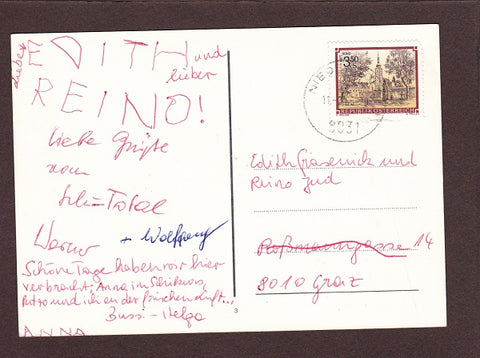 Liebe EDITH und
lieber
REINO!
liebe Grüße
vom
Ski-Total
Werner + Wolfgang
Schöne Tage haben wir hier
verbracht, Anna im Schikurs,
und ich an der frischen Luft...
Bussi - Helga
ANNA
3.50
REPUBLIK ÖSTERREICH
8931
Edith Grasenick und
Reino Jud
Roßmanngasse 14
8010 Graz
3